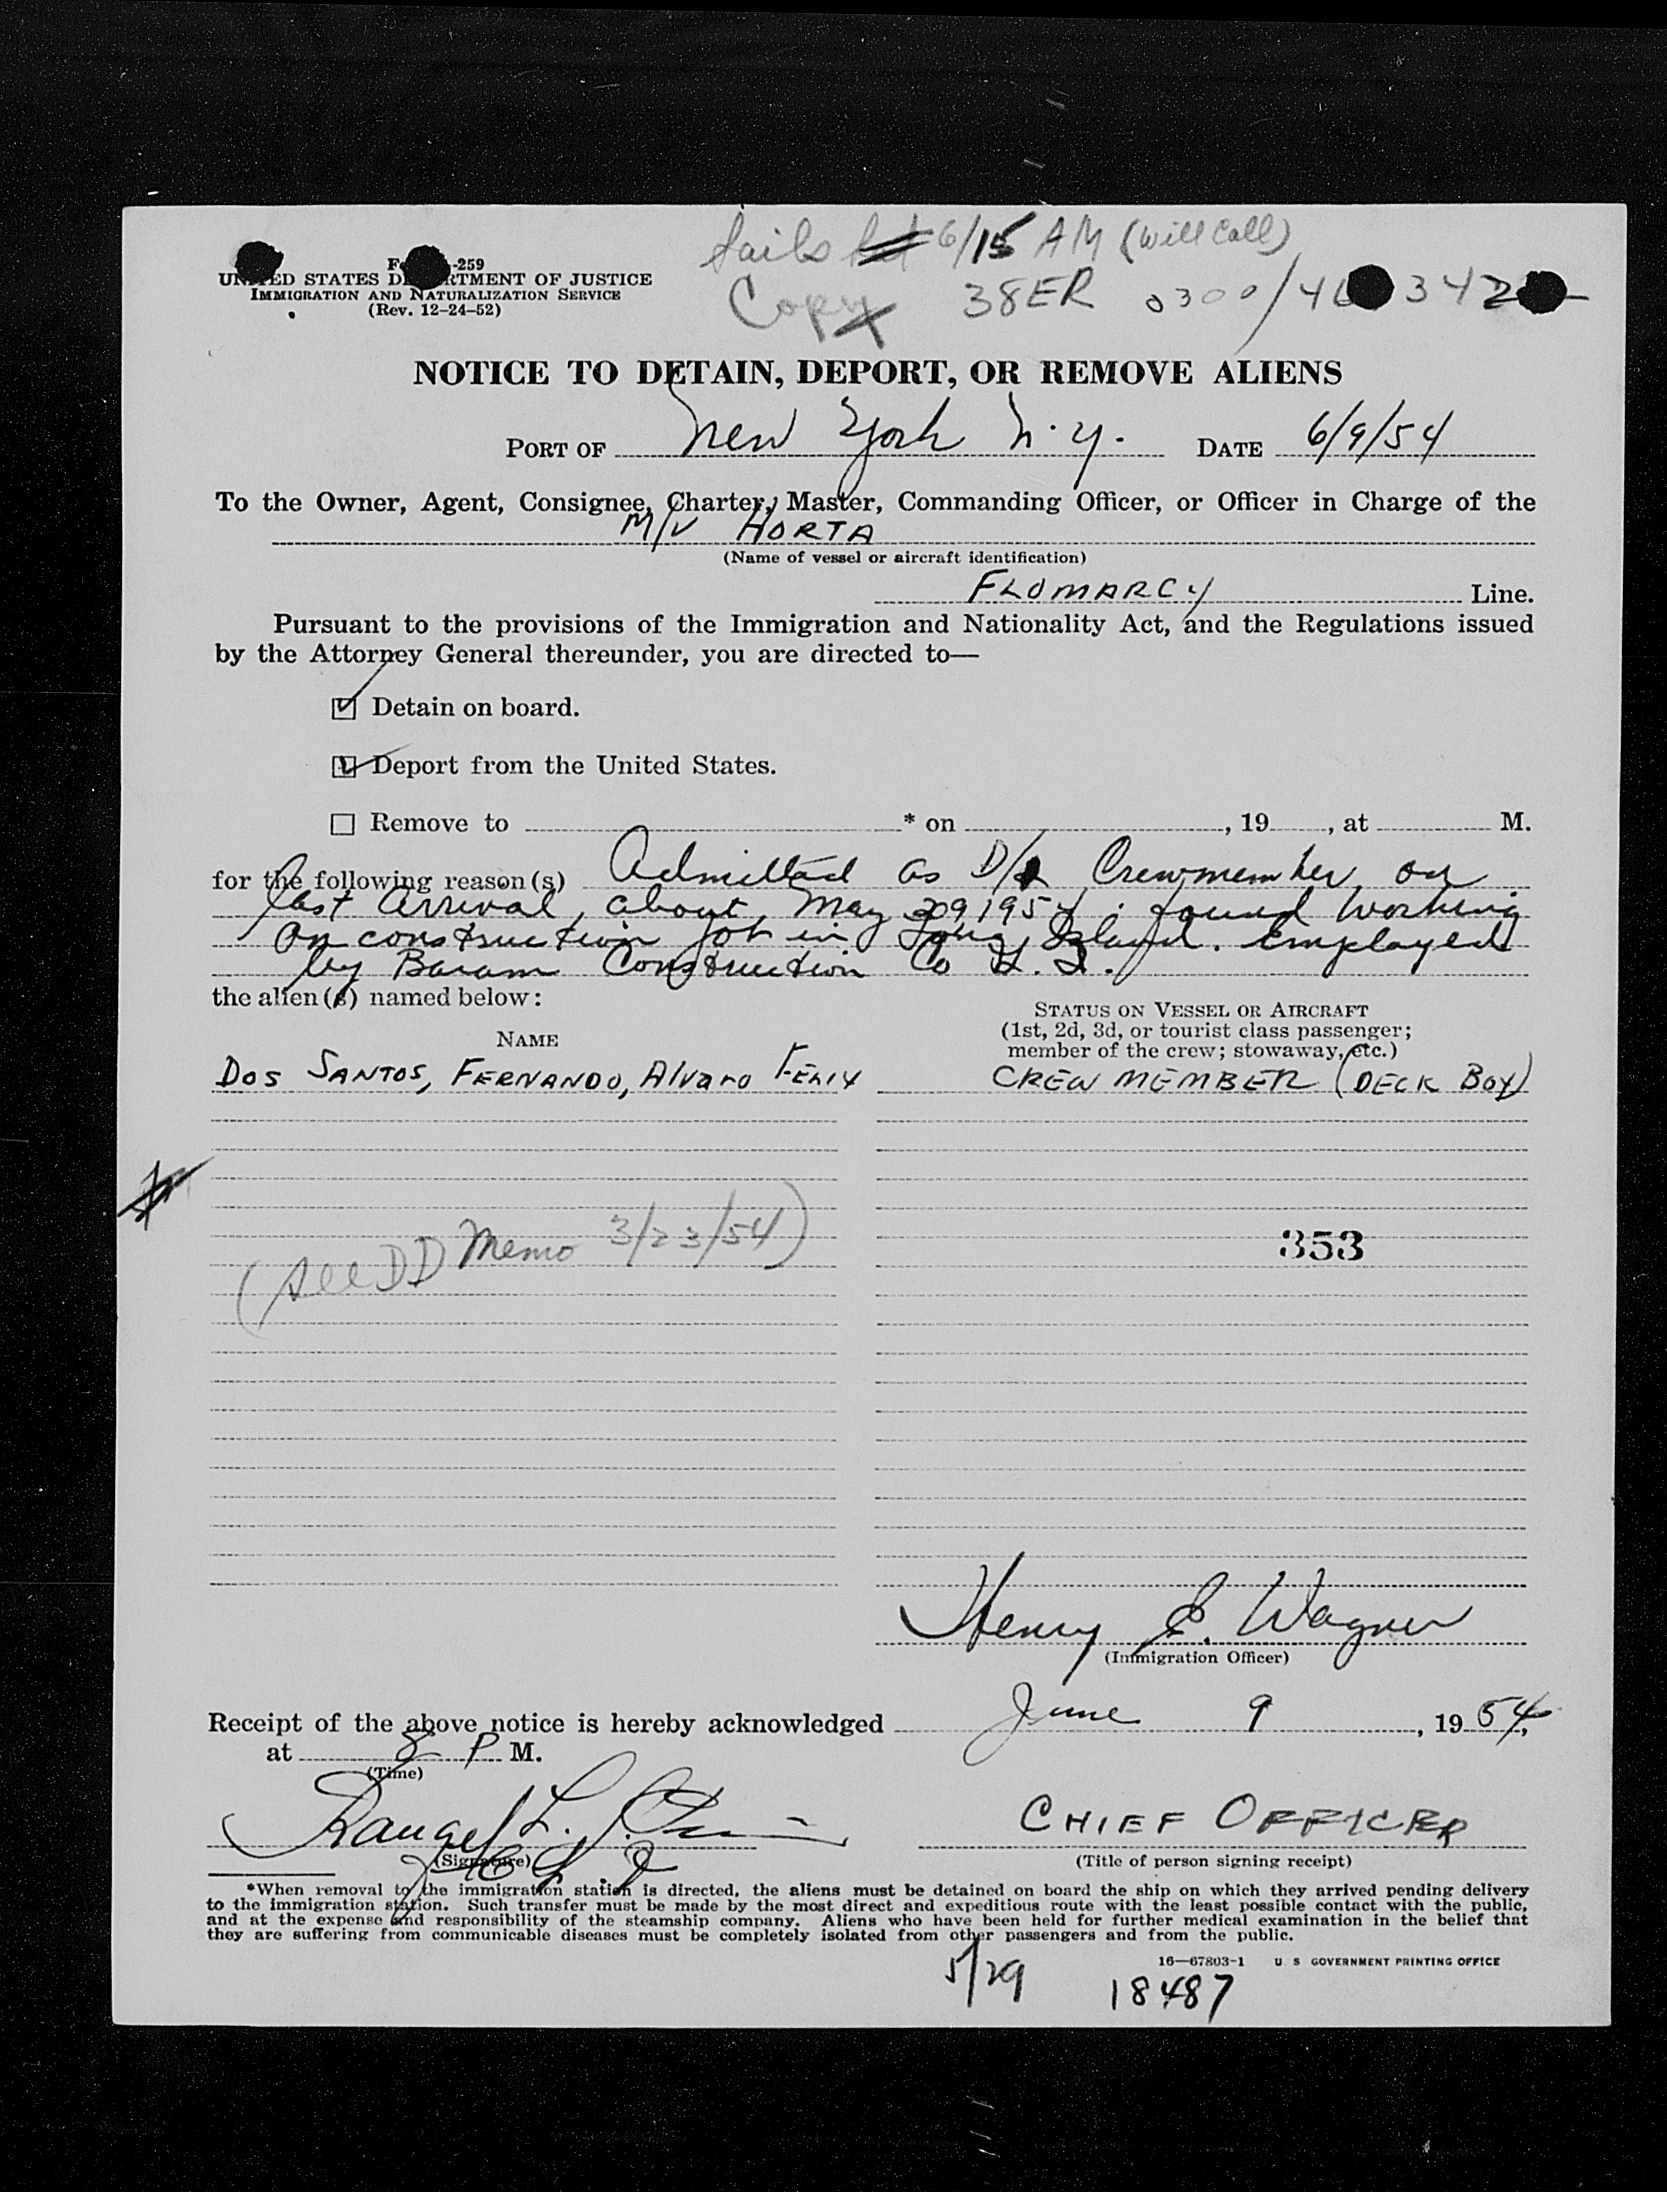 Sails 6/15 AM (will call)
-259
UNITED STATES DEPARTMENT OF JUSTICE
IMMIGRATION AND NATURALIZATION SERVICE
(Rev. 12-24-52)
Copy 38ER 0300/46 342
NOTICE TO DETAIN, DEPORT, OR REMOVE ALIENS
PORT OF New York N.Y. DATE 6/9/54
To the Owner, Agent, Consignee, Charter, Master, Commanding Officer, or Officer in Charge of the
M/V HORTA
(Name of vessel or aircraft identification)
FLOMARCY Line.
Pursuant to the provisions of the Immigration and Nationality Act, and the Regulations issued
by the Attorney General thereunder, you are directed to—
☑ Detain on board.
☑ Deport from the United States.
☐ Remove to * on , 19 , at M.
for the following reason(s) Admitted as D/ Crewmember on
last arrival, about May 29, 1954; found working
on construction job in Long Island. Employed
by Baram Construction Co L.I.
the alien(s) named below:
NAME
STATUS ON VESSEL OR AIRCRAFT
(1st, 2d, 3d, or tourist class passenger;
member of the crew; stowaway, etc.)
DOS SANTOS, FERNANDO, Alvaro FELIX CREW MEMBER (DECK BOY)
353
(See DD Memo 3/23/54)
Henry E. Wagner
(Immigration Officer)
Receipt of the above notice is hereby acknowledged June 9, 1954,
at 8 P M.
(Time)
CHIEF OFFICER
(Signature) (Title of person signing receipt)
*When removal to the immigration station is directed, the aliens must be detained on board the ship on which they arrived pending delivery
to the immigration station. Such transfer must be made by the most direct and expeditious route with the least possible contact with the public,
and at the expense and responsibility of the steamship company. Aliens who have been held for further medical examination in the belief that
they are suffering from communicable diseases must be completely isolated from other passengers and from the public.
16—67803-1 U S GOVERNMENT PRINTING OFFICE
5/29 18487